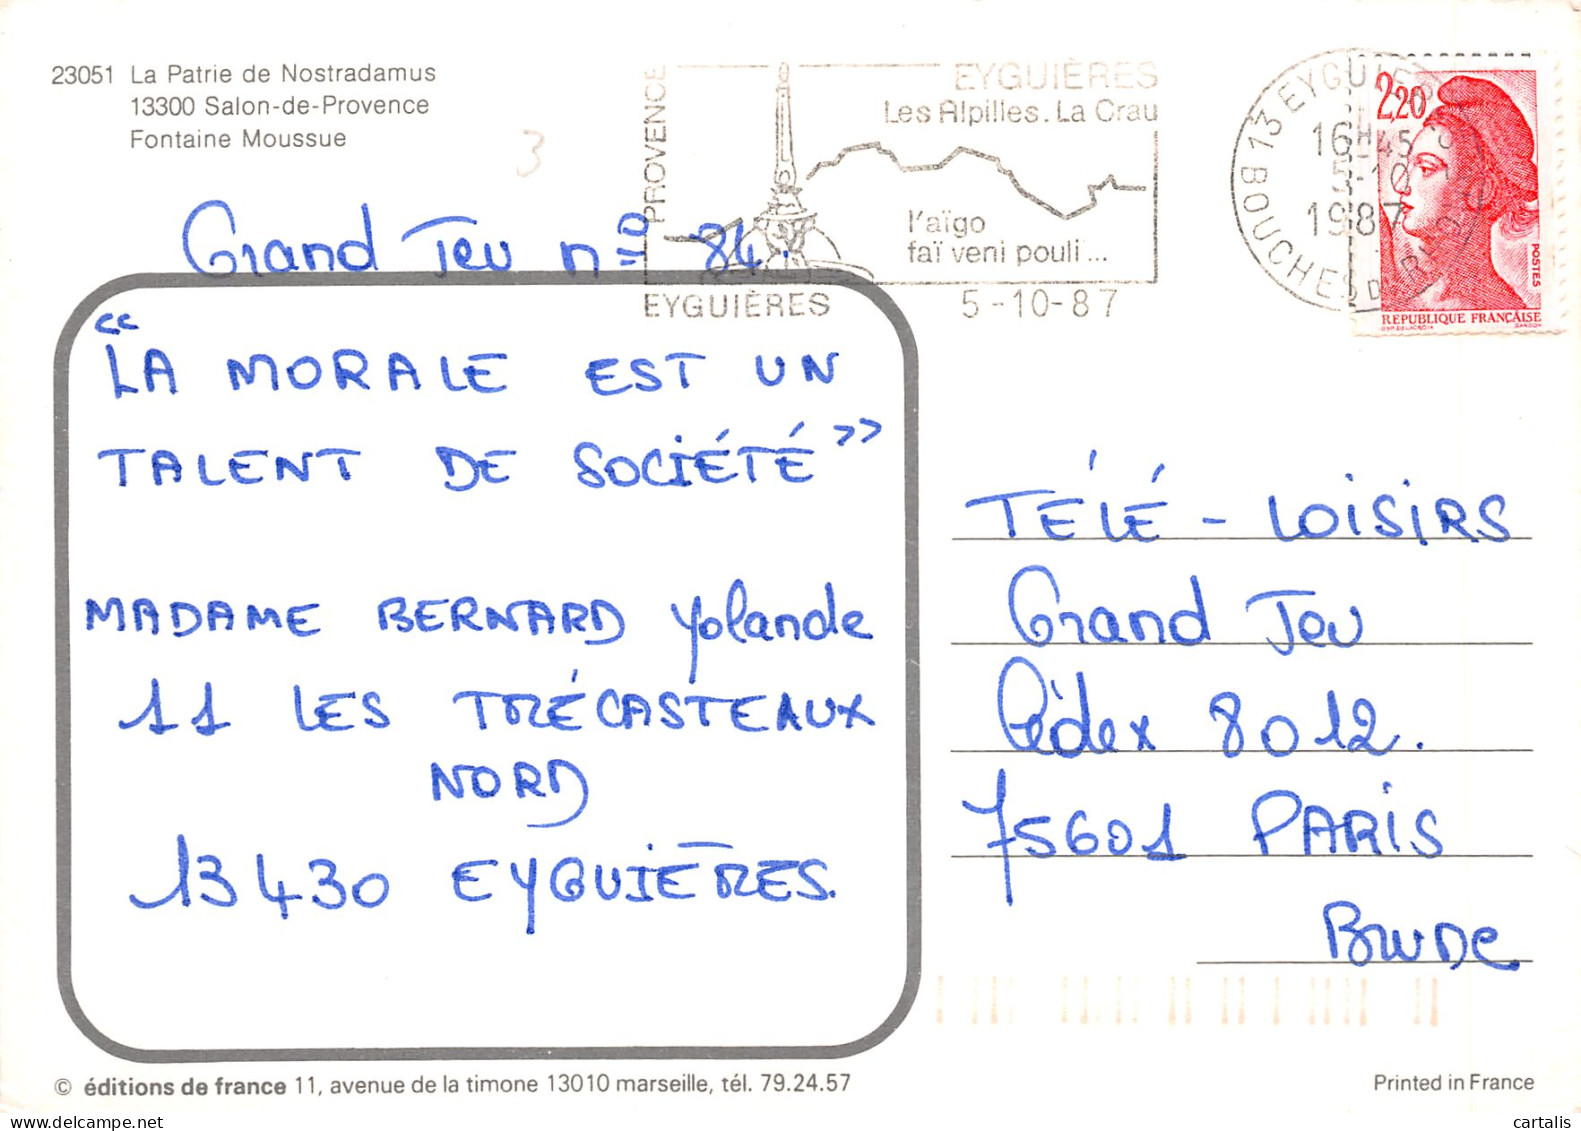 23051 La Patrie de Nostradamus
13300 Salon-de-Provence
Fontaine Moussue
3
PROVENCE
EYGUIÈRES
Les Alpilles. La Crau
l'aïgo
faï veni pouli...
EYGUIÈRES
5-10-87
13 EYGUIERES
16H45
5-10
1987
BOUCHES DU RHONE
2,20
POSTES
REPUBLIQUE FRANÇAISE
D'AP. DELACROIX GANDON
Grand Jeu n° 84.
"LA MORALE EST UN
TALENT DE SOCIÉTÉ"
MADAME BERNARD Yolande
11 LES TRÉCASTEAUX
NORD
13430 EYGUIÈRES.
TÉLÉ - LOISIRS
Grand Jeu
Cédex 8012.
75601 PARIS
© éditions de france 11, avenue de la timone 13010 marseille, tél. 79.24.57
Printed in France
delcampe.net
cartalis